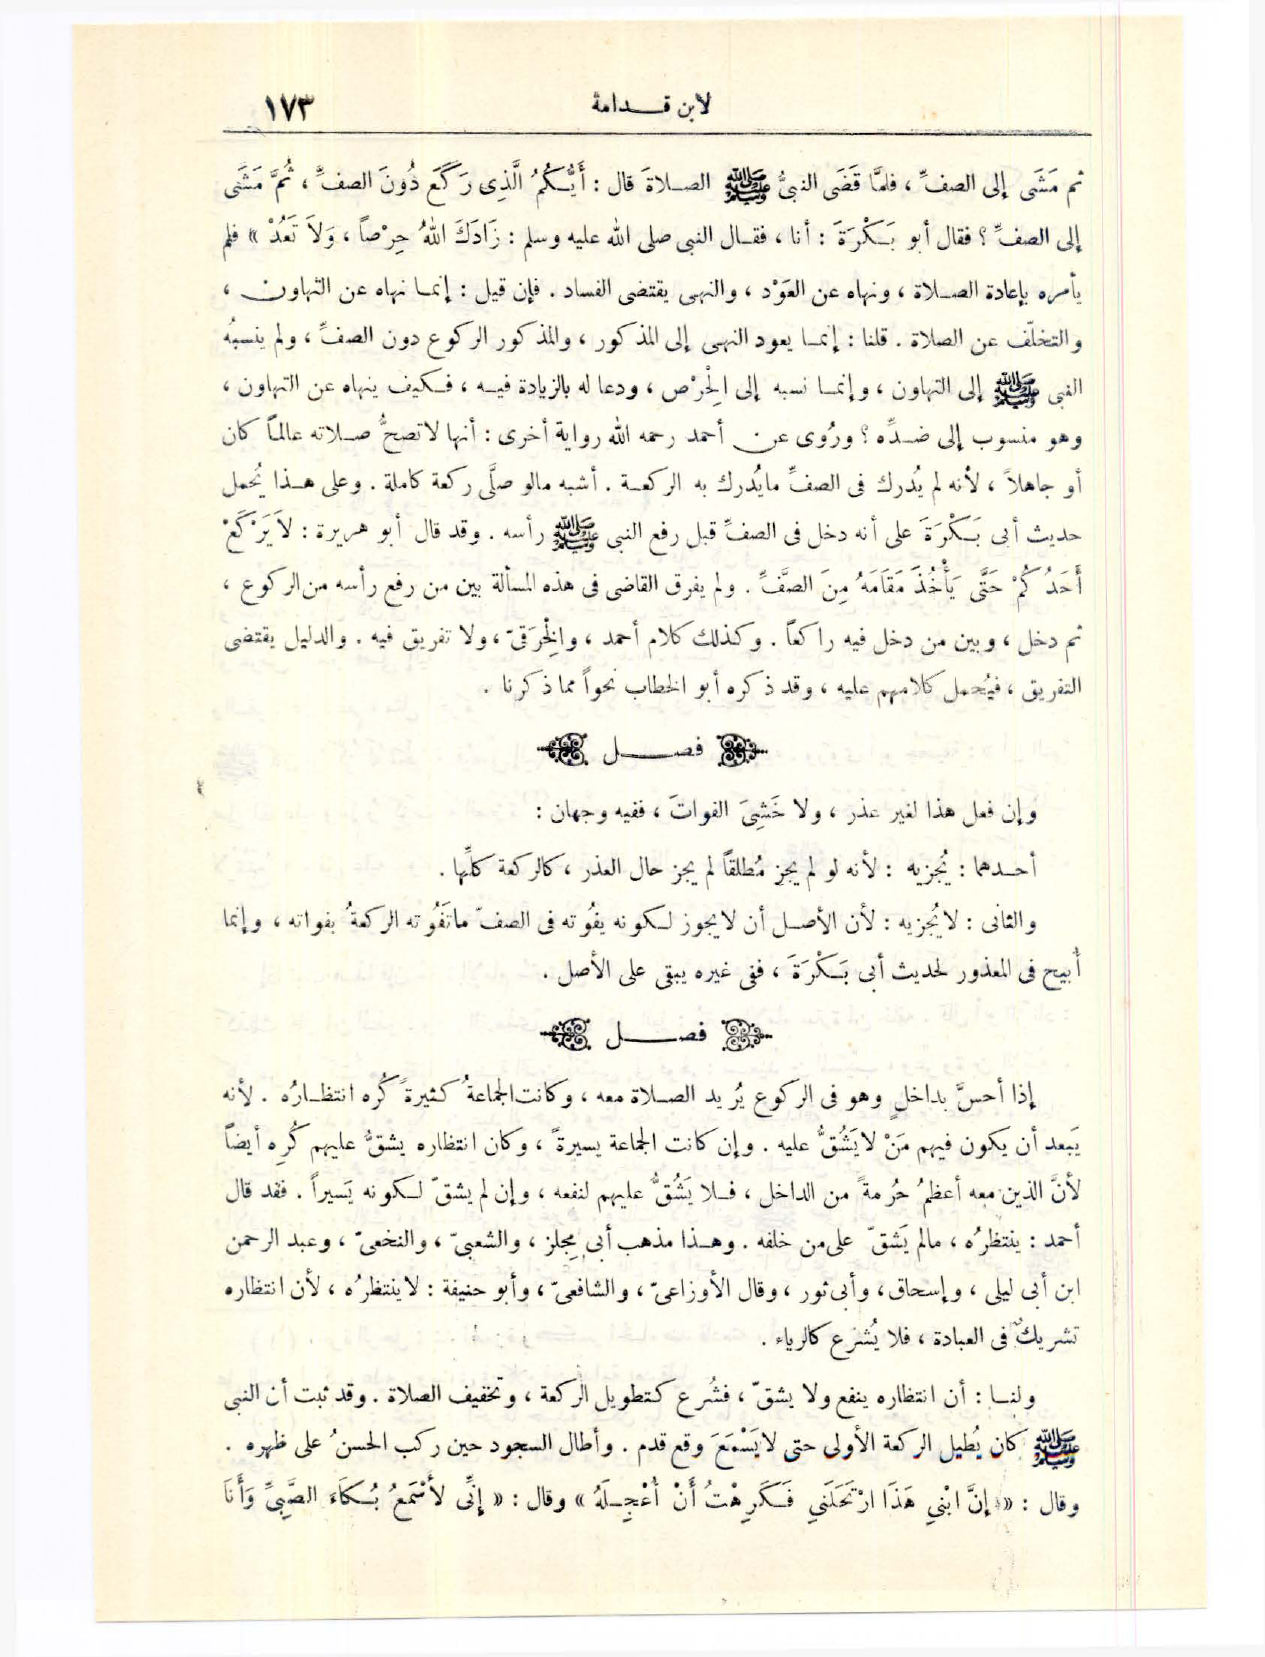 لابن قدامة ١٧٣
ثم مَشَى إلى الصفِّ ، فلمَّا قَضَى النبىُّ ﷺ الصلاةَ قال : أَيُّكُمُ الَّذِى رَكَعَ دُونَ الصفِّ ، ثُمَّ مَشَى
إلى الصفِّ ؟ فقال أبو بَكْرَةَ : أنا ، فقال النبى صلى الله عليه وسلم : زَادَكَ اللهُ حِرْصاً ، وَلاَ تَعُدْ » فلم
يأمره بإعادة الصلاة ، ونهاه عن العَوْد ، والنهى يقتضى الفساد . فإن قيل : إنما نهاه عن التهاون ،
والتخلّف عن الصلاة . قلنا : إنما يعود النهى إلى المذكور ، والمذكور الركوع دون الصفِّ ، ولم ينسبُه
النبى ﷺ إلى التهاون ، وإنما نسبه إلى الِحْرْص ، ودعا له بالزيادة فيه ، فكيف ينهاه عن التهاون ،
وهو منسوب إلى ضدِّه ؟ ورُوى عن أحمد رحمه الله رواية أخرى : أنها لاتصحُّ صلاته عالماً كان
أو جاهلاً ، لأنه لم يُدرك فى الصفِّ مايُدرك به الركعة . أشبه مالو صلَّى ركعة كاملة . وعلى هذا يُحمل
حديث أبى بَكْرَةَ على أنه دخل فى الصفِّ قبل رفع النبى ﷺ رأسه . وقد قال أبو هريرة : لاَ يَرْكَعْ
أَحَدُكُمْ حَتَّى يَأْخُذَ مَقَامَهُ مِنَ الصَّفِّ . ولم يفرق القاضى فى هذه المسألة بين من رفع رأسه من الركوع ،
ثم دخل ، وبين من دخل فيه راكعاً . وكذلك كلام أحمد ، والِخْرَقىّ ، ولا تفريق فيه . والدليل يقتضى
التفريق ، فيُحمل كلامهم عليه ، وقد ذكره أبو الخطاب نحواً مما ذكرنا .
فصل
وإن فعل هذا لغير عذر ، ولا خَشِىَ الفواتَ ، ففيه وجهان :
أحدهما : يُجزيه : لأنه لو لم يجز مُطلقاً لم يجز حال العذر ، كالركعة كلِّها .
والثانى : لايُجزيه : لأن الأصل أن لايجوز لكونه يفُوته فى الصفّ ماتَفُوته الركعةُ بفواته ، وإنما
أُبيح فى المعذور لحديث أبى بَكْرَةَ ، ففى غيره يبقى على الأصل .
فصل
إذا أحسَّ بداخلٍ وهو فى الركوع يُريد الصلاة معه ، وكانت الجماعةُ كثيرةً كُره انتظارُه . لأنه
يَبعد أن يكون فيهم مَنْ لايَشُقُّ عليه . وإن كانت الجماعة يسيرةً ، وكان انتظاره يشقُّ عليهم كُرِه أيضاً
لأنَّ الذين معه أعظمُ حُرمةً من الداخل ، فلا يَشُقُّ عليهم لنفعه ، وإن لم يشقّ لكونه يَسيراً . فقد قال
أحمد : ينتظرُه ، مالم يَشقّ على من خلفه . وهذا مذهب أبى مِجلز ، والشعبىّ ، والنخعىّ ، وعبد الرحمن
ابن أبى ليلى ، وإسحاق ، وأبى ثور ، وقال الأوزاعىّ ، والشافعىّ ، وأبو حنيفة : لاينتظرُه ، لأن انتظاره
تشريكٌ فى العبادة ، فلا يُشرع كالرياء .
ولنا : أن انتظاره ينفع ولا يشقّ ، فشُرع كتطويل الركعة ، وتخفيف الصلاة . وقد ثبت أن النبى
ﷺ كان يُطيل الركعة الأولى حتى لايَسْمَعَ وقع قدم . وأطال السجود حين ركب الحسنُ على ظهره .
وقال : « إنَّ ابْنِي هَذَا ارْتَحَلَنِي فَكَرِهْتُ أَنْ أُعْجِلَهُ » وقال : « إنِّى لأَسْمَعُ بُكَاءَ الصَّبِىِّ وَأَنَا